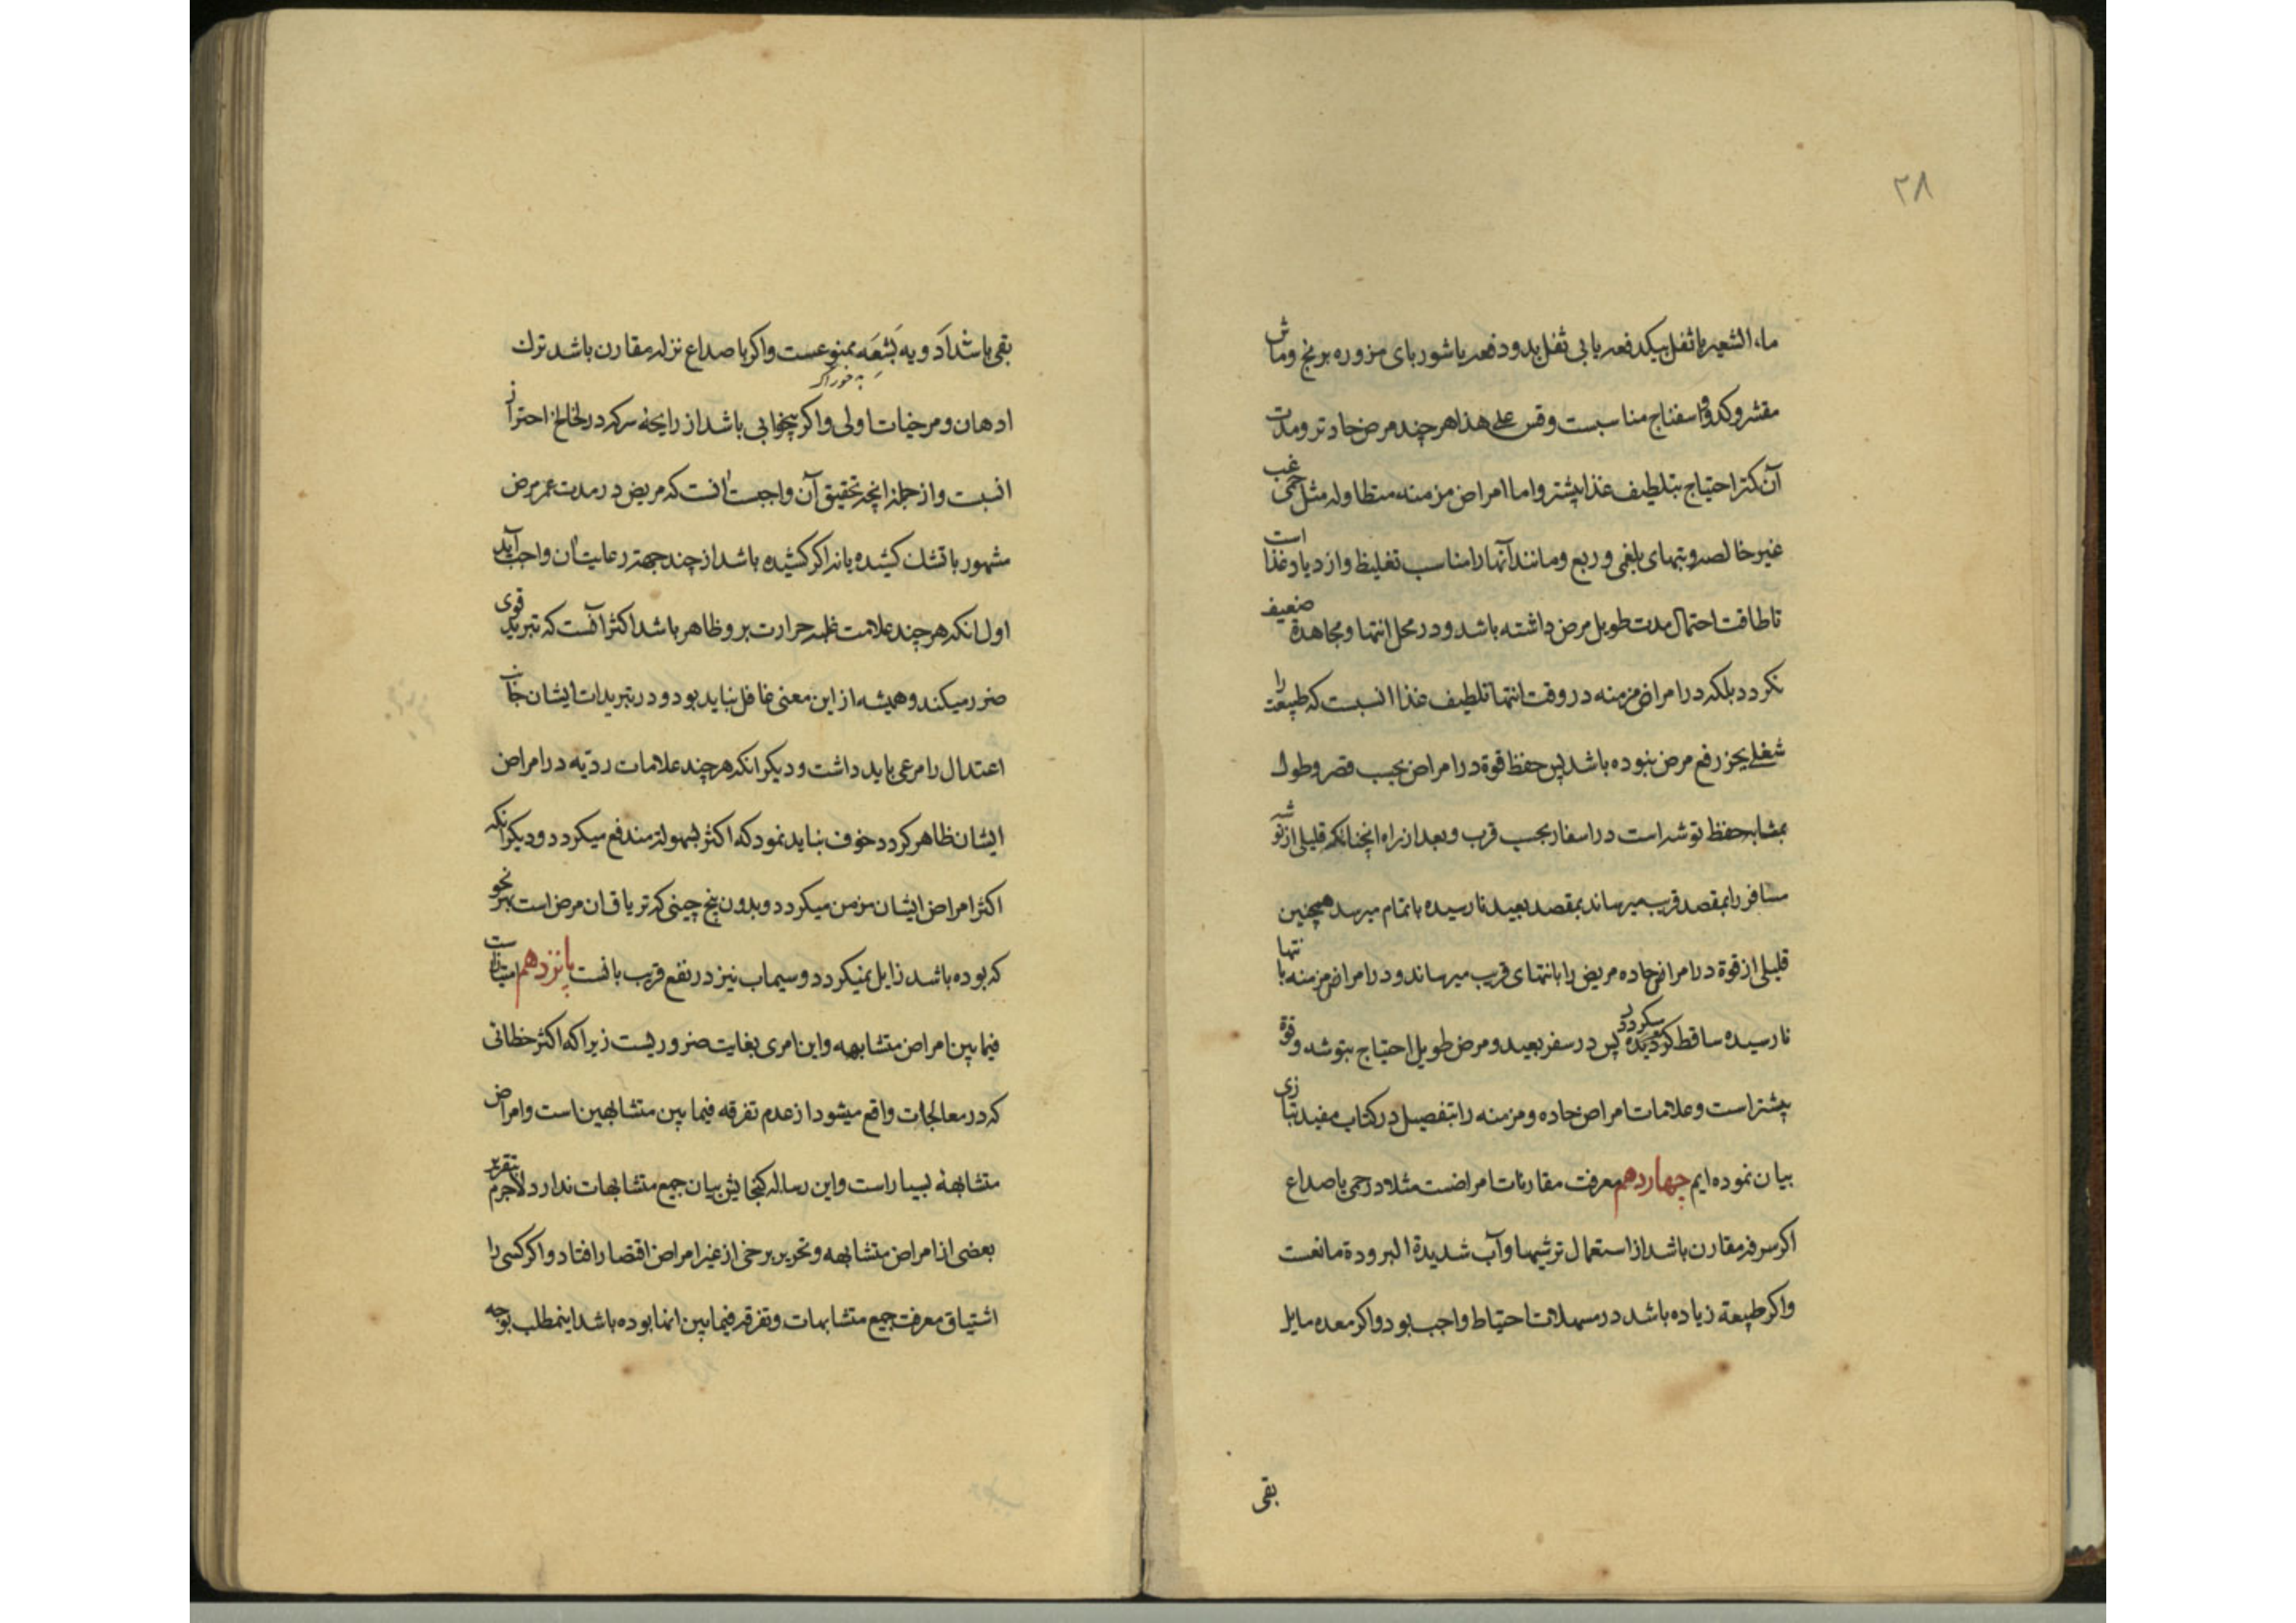 ۲۸
ماء الشعیر با ثفل بیکدفعه یا بی ثفل بدو دفعه یا شوربای مزوره برنج وماش
مقشر وکدو و اسفناج مناسبست وقس علی هذا هر چند مرض حادتر ومدت
آن کمتر احتیاج بتلطیف غذا بیشتر واما امراض مزمنه متطاوله مثل حمی غب
غیر خالصه وتبهای بلغمی و ربع ومانند آنها را مناسب تغلیظ وازدیاد غذا است
تا طاقت احتمال مدت طویل مرض داشته باشد ودر محل انتها ومجاهدة ضعیف
نکردد بلکه در امراض مزمنه در وقت انتها تلطیف غذا انسبست که طبیعت را
شغلی بجز رفع مرض نبوده باشد پس حفظ قوة در امراض بحسب قصر وطول
بمثابه حفظ توشه است در اسفار بحسب قرب وبعد از راه انچنانکه قلیلی از توشه
مسافر را بمقصد قریب میرساند بمقصد بعید نا رسیده باتمام میرسد همچنین
قلیلی از قوة در امراض حاده مریض را بانتهای قریب میرساند ودر امراض مزمنه بانتها
نا رسیده ساقط کردیده میکردد پس در سفر بعید ومرض طویل احتیاج بتوشه وقوة
بیشتر است وعلامات امراض حاده ومزمنه را بتفصیل در کتاب مفید بتازی
بیان نموده ایم چهاردهم معرفت مقارنات امراضست مثلا در حمی با صداع
اکر سرفه مقارن باشد از استعمال ترشیها وآب شدیدة البرودة مانعست
واکر طبیعة زیاده باشد در مسهلات احتیاط واجب بود واکر معده مایل
بقی
بقی باشد اَدویه بَشِعَه ممنوعست واکر با صداع نزله مقارن باشد ترك
به خوراک
ادهان ومرخیات اولی واکر بیخوابی باشد از رایحهٔ سرکه در لخالخ احتراز
انسبت واز جمله انچه تحقیق آن واجبست انست که مریض در مدت عمر مرض
مشهور باتشك کشیده یا نه اکر کشیده باشد از چند جهة رعایت ان واجب آید
اول انکه هر چند علامت غلبه حرارت بر و ظاهر باشد اکثر آنست که تبرید قوی
ضرر میکند وهمیشه از این معنی غافل نباید بود ودر تبریدات ایشان جانب
اعتدال را مرعی باید داشت ودیکر انکه هر چند علامات ردیّه در امراض
ایشان ظاهر کردد خوف نباید نمود که اکثر بسهولة مندفع میکردد ودیکر انکه
اکثر امراض ایشان مزمن میکردد وبدون بیخ چینی که تریاق ان مرض است بهر نحو
که بوده باشد زایل نمیکردد وسیماب نیز در نفع قریب بانست پانزدهم امتیازاست
فیما بین امراض متشابهه واین امری بغایت ضروریست زیرا که اکثر خطائی
که در معالجات واقع میشود از عدم تفرقه فیما بین متشابهین است وامراض
متشابهة بسیار است واین رساله کنجایش بیان جمیع متشابهات ندارد لاجرم بتقریر
بعضی از امراض متشابهه وتحریر برخی از غیر امراض اقتصار افتاد واکر کسی را
اشتیاق معرفت جمیع متشابهات وتفرقه فیما بین انها بوده باشد اینمطلب بوجه